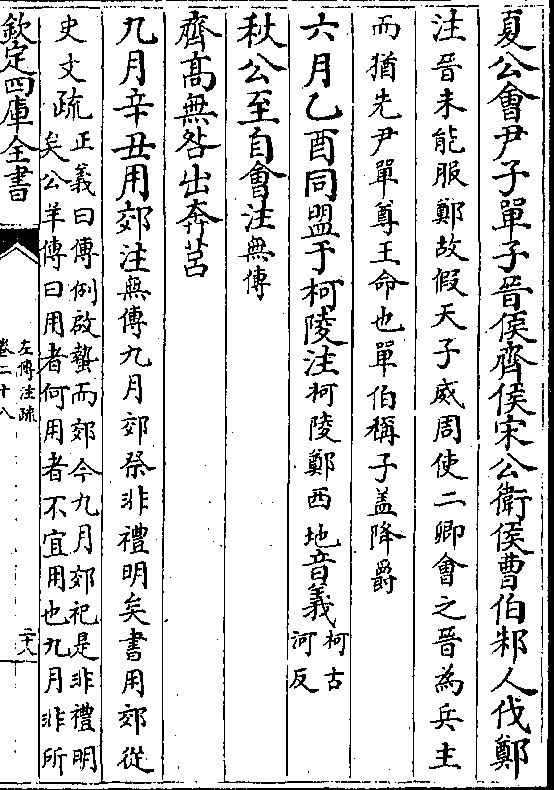 夏公會尹子單子晉侯齊侯宋公衛侯曹伯邾人伐鄭
注晉未能服鄭故假天子威周使二卿會之晉為兵主
而猶先尹單尊王命也單伯稱子盖降爵
六月乙酉同盟于柯陵注柯陵鄭西地音義柯古河反
秋公至自會注無傳
齊髙無咎出奔莒
九月辛丑用郊注無傳九月郊祭非禮明矣書用郊從
史文疏正義曰傳例啟蟄而郊今九月郊祀是非禮明
矣公羊傳曰用者何用者不宜用也九月非所
欽定四庫全書
左傳注疏
卷二十八
二十八